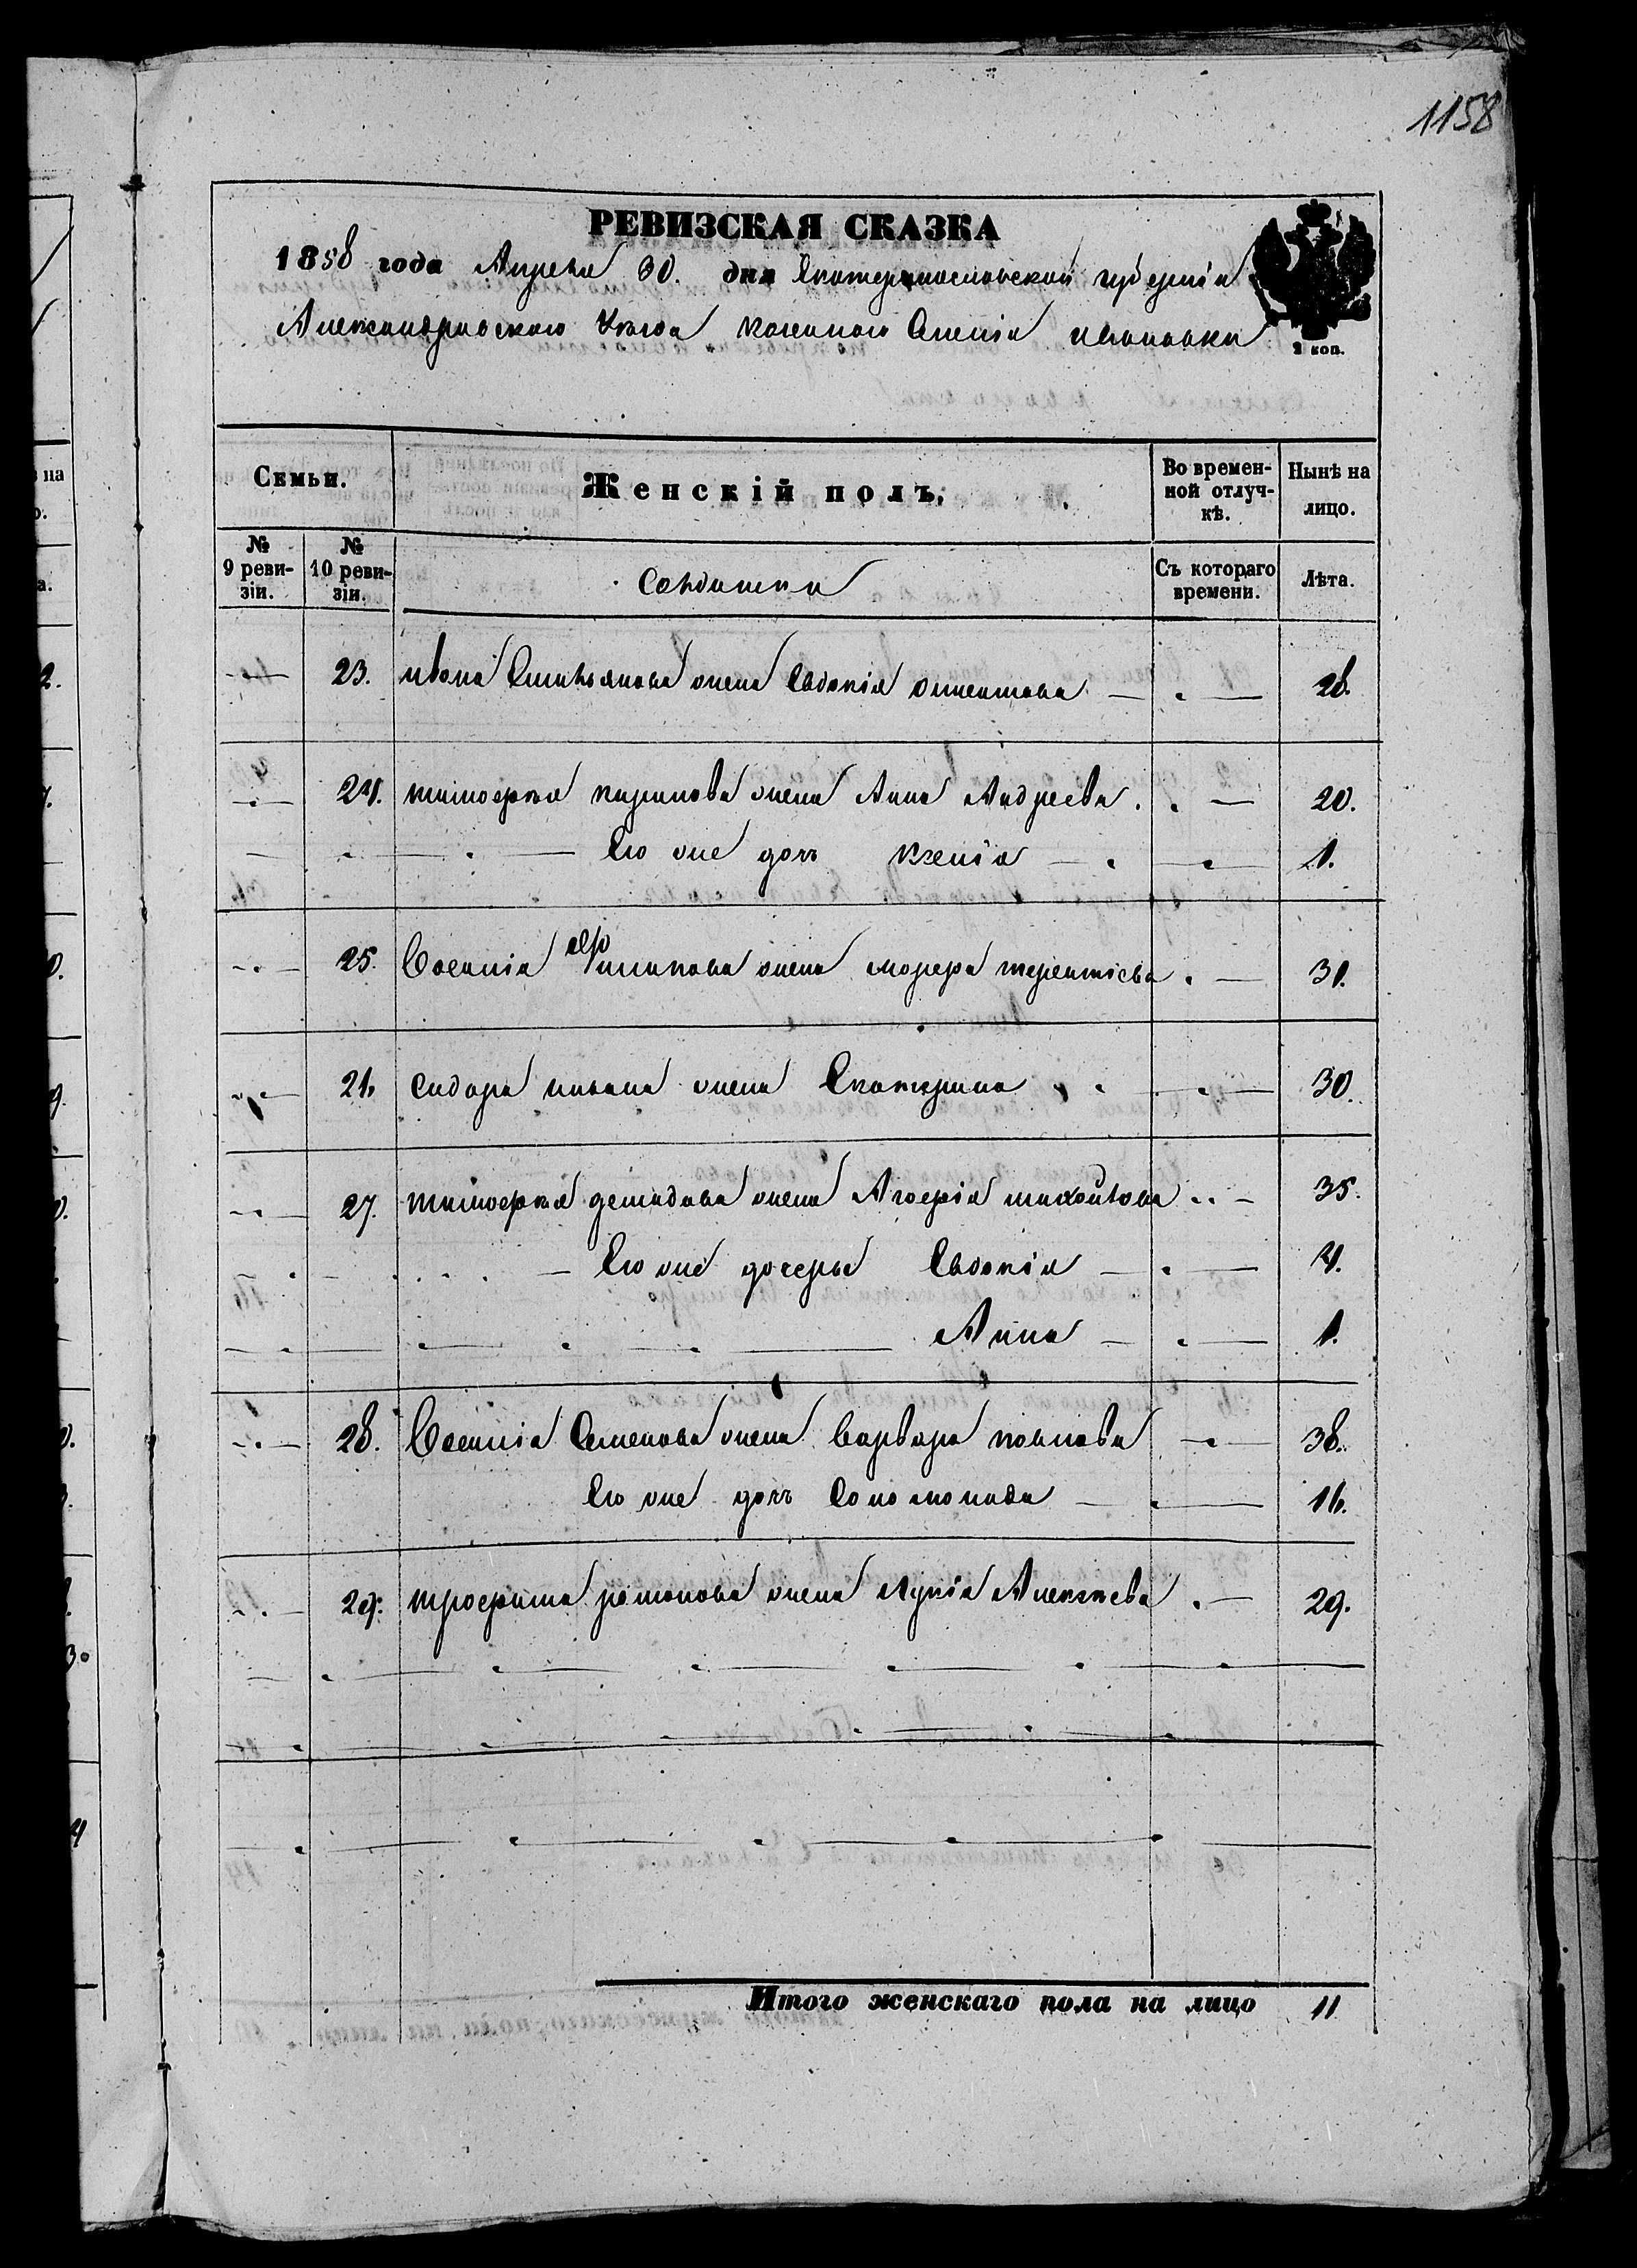 1158
РЕВИЗСКАЯ СКАЗКА
1858 года Апреля 30. дня Екатеринославской губерніи
Александровскаго Уезда казеннаго Селенія ивановки
2 коп.
Семьи. Женскій полъ. Во времен-ной отлуч-кѣ. Нынѣ на лицо.
№ 9 реви-зіи. № 10 реви-зіи. Солдатки Съ котораго времени. Лѣта.
23. ивана Емильянова жена Евдокія 28.
24. тимофея жена Анна Андреева. 20.
Его же дочь Ксенія 1.
25. Євсегнія жена терентіева 31.
26. сидора жена Екатерина 30.
27. тимофея демидова жена Агафія 35.
Его же дочеры Евдокія 4.
Анна 1.
28. Семенова жена варвара павлова 38.
Его же дочь Соломонида 16.
29. трофима романова жена Лукія Алексеева 29.
Итого женскаго пола на лицо 11